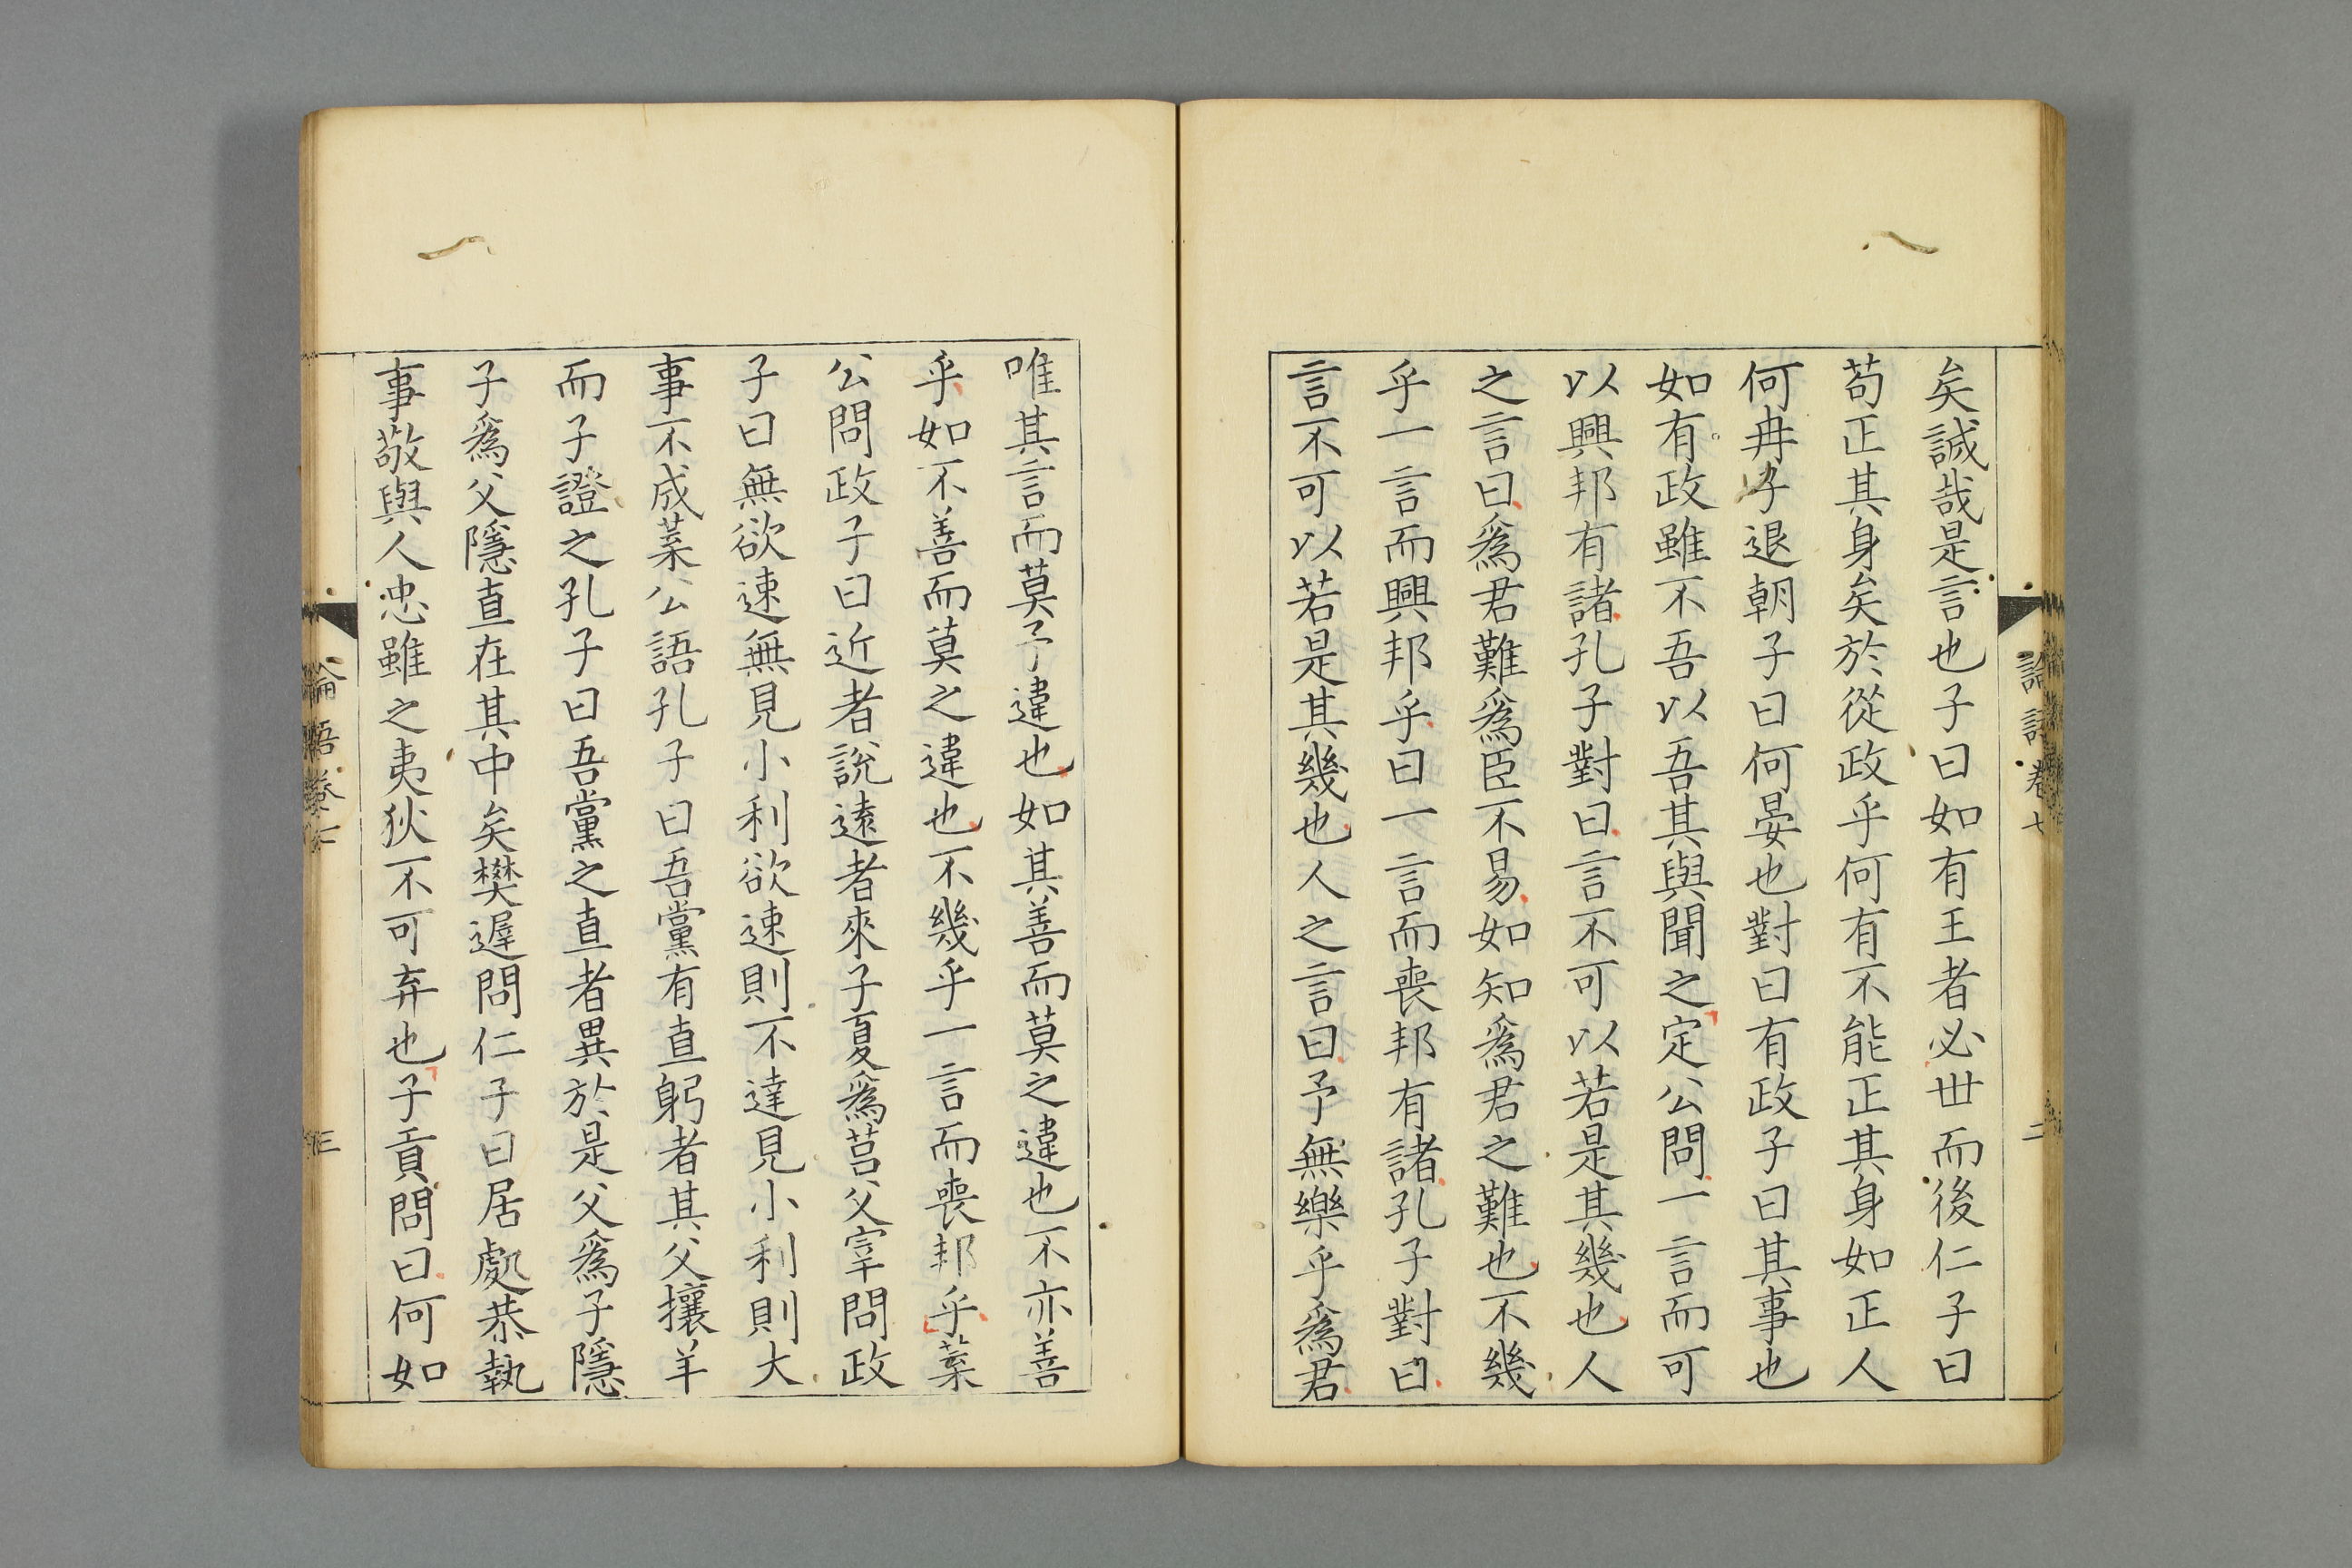 矣誠哉是言也子曰如有王者必世而後仁子曰
苟正其身矣於從政乎何有不能正其身如正人
何冉子退朝子曰何晏也對曰有政子曰其事也
如有政雖不吾以吾其與聞之定公問一言而可
以興邦有諸孔子對曰言不可以若是其幾也人
之言曰爲君難爲臣不易如知爲君之難也不幾
乎一言而興邦乎曰一言而喪邦有諸孔子對曰
言不可以若是其幾也人之言曰予無樂乎爲君
唯其言而莫予違也如其善而莫之違也不亦善
乎如不善而莫之違也不幾乎一言而喪邦乎葉
公問政子曰近者說遠者來子夏爲莒父宰問政
子曰無欲速無見小利欲速則不達見小利則大
事不成葉公語孔子曰吾黨有直躬者其父攘羊
而子證之孔子曰吾黨之直者異於是父爲子隱
子爲父隱直在其中矣樊遲問仁子曰居處恭執
事敬與人忠雖之夷狄不可弃也子貢問曰何如
論語卷七
二
論語卷七
三